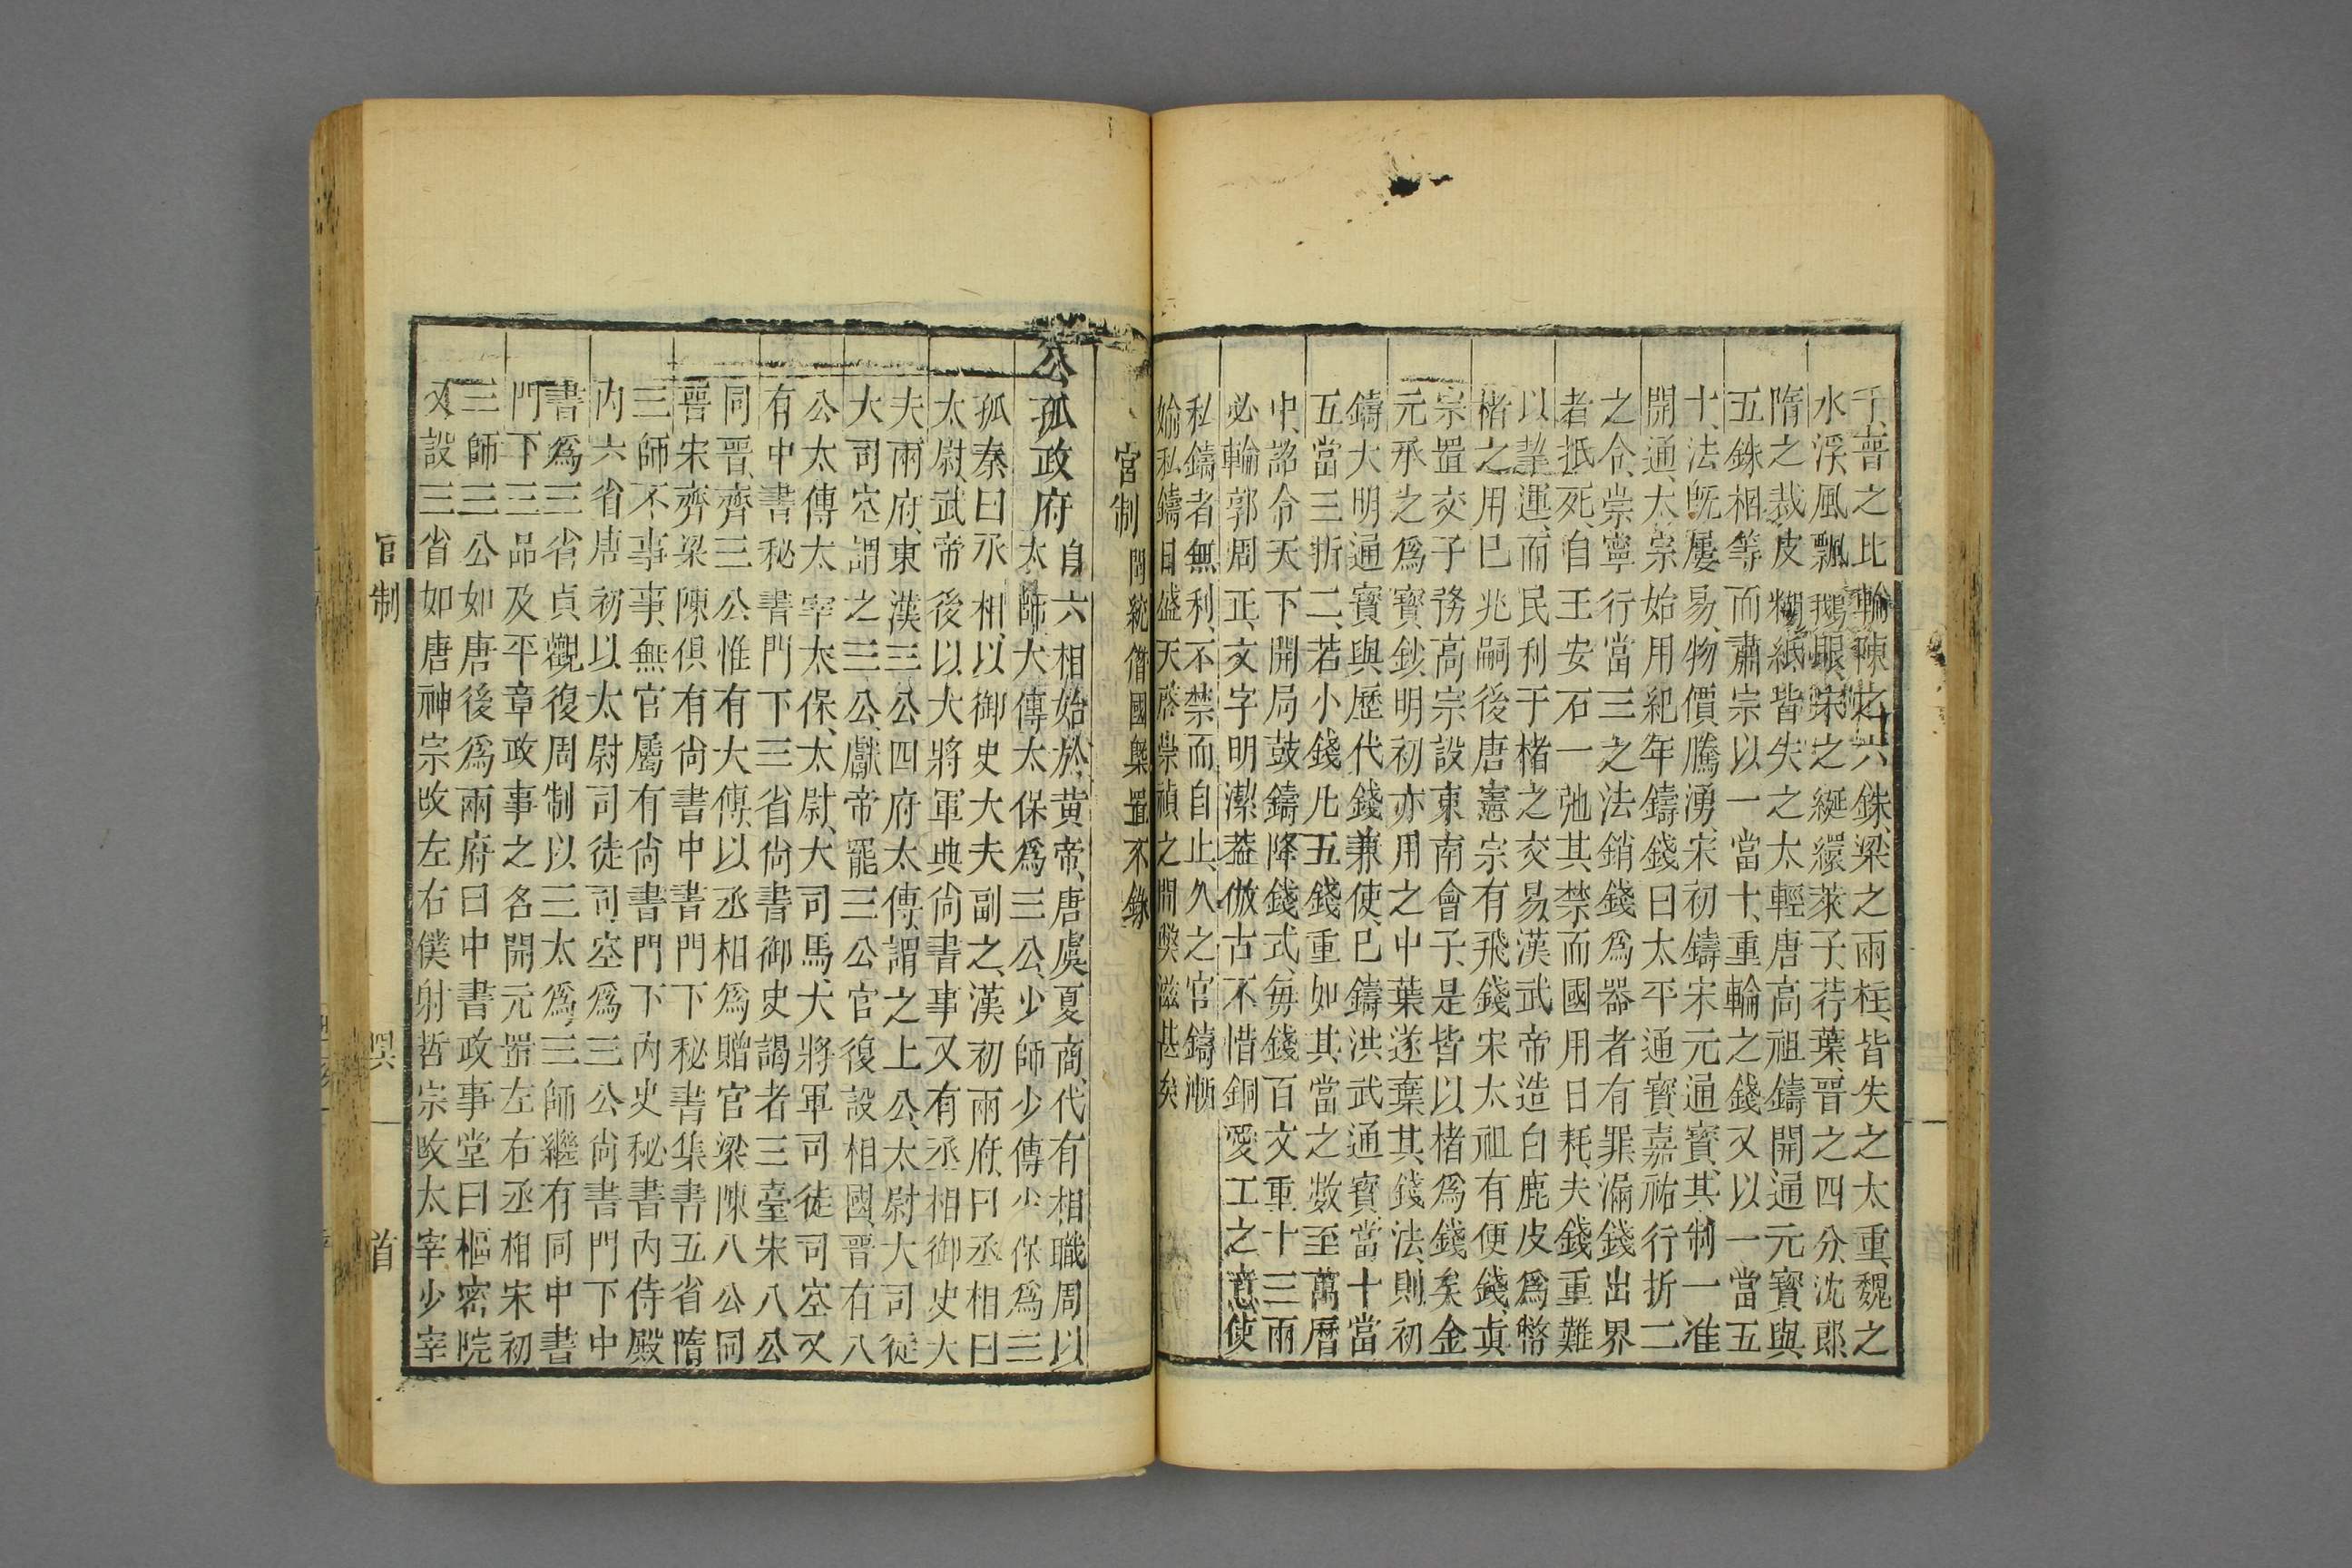 千、晉之比輪陳之六銖、梁之兩柱、皆失之太重、魏之
水浮、風飄、鵝眼、宋之綖繯萊子、荇葉、晉之四分、沈郎、
隋之裁皮糊紙、皆失之太輕、唐高祖鑄開通元寶、與
五銖相等、而肅宗以一當十、重輪之錢、又以一當五
十、法旣屢易、物價騰湧、宋初鑄宋元通寶、其制一准
開通、太宗始用紀年鑄錢曰太平通寶、嘉祐行折二
之令、崇寧行當三之法、銷錢爲器者有罪、漏錢出界
者抵死、自王安石一弛其禁而國用日耗、夫錢重難
以𢹂運、而民利于楮之交易、漢武帝造白鹿皮爲幣
楮之用已兆嗣後唐憲宗有飛錢、宋太祖有便錢、眞
宗置交子務、高宗設東南會子、是皆以楮爲錢矣、金
元承之爲寶鈔、明初亦用之中葉遂棄其錢法、則初
鑄大明通寶與歷代錢兼使、已鑄洪武通寶當十當
五當三折二、若小錢凡五、錢重如其當之數、至萬曆
中、詔令天下開局鼓鑄、降錢式、每錢百文重十三兩
必輪郭周正、文字明潔、葢倣古不惜銅愛工之意、使
私鑄者無利、不禁而自止、久之官鑄漸
媮私鑄日盛天啓崇禎之間獘滋甚矣
官制 閏統僭國槩置不錄
公孤政府 自六相始於黃帝、唐虞夏商、代有相職周以
太師、太傅太保爲三公、少師少傅少保爲三
孤秦曰丞相、以御史大夫副之、漢初兩府、曰丞相曰
太尉、武帝後以大將軍典尚書事又有丞相御史大
夫兩府、東漢三公四府太傅、謂之上公、太尉大司徒
大司空謂之三公、獻帝罷三公官復設相國、晉有八
公太傅太宰太保、太尉、大司馬、大將軍司徒司空又
有中書秘書門下三省尚書御史謁者三臺宋八公
同晉、齊三公惟有大傅、以丞相爲贈官梁陳八公同
晉宋齊梁陳俱有尚書中書門下秘書集書五省隋
三師不事事、無官屬有尚書門下內史秘書內侍殿
內六省唐初以太尉司徒司空爲三公尚書門下中
書爲三省貞觀復周制以三太爲三師繼有同中書
門下三品及平章政事之名開元置左右丞相宋初
三師三公如唐後爲兩府曰中書政事堂曰樞密院
又設三省如唐神宗改左右僕射哲宗改太宰少宰
官制 首